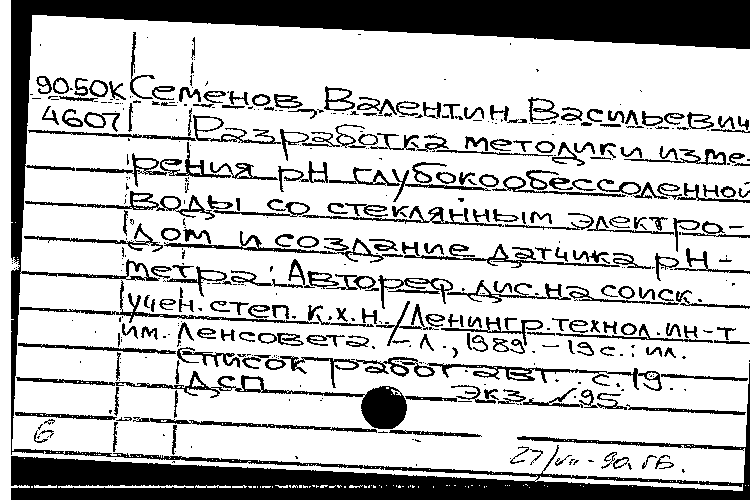 90-50К Семенов, Валентин Васильевич
4607 Разработка методики изме-
рения рН глубокообессоленной
воды со стеклянным электро-
дом и создание датчика рН-
метра: Автореф. дис. на соиск.
учен. степ. к.х.н. / Ленингр. технол. ин-т
им. Ленсовета. - Л., 1989. - 19 с.: ил.
Список работ авт.: с. 19.
ДСП Экз. №95.
6
27/VII-90